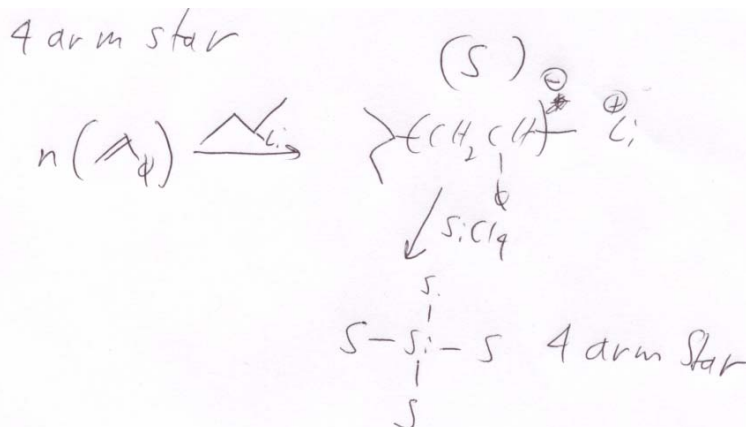 4 arm star
(S)
n( φ) Li (CH₂CH) ⊖ ⊕ Li
φ
SiCl₄
S
S-Si-S 4 arm Star
S